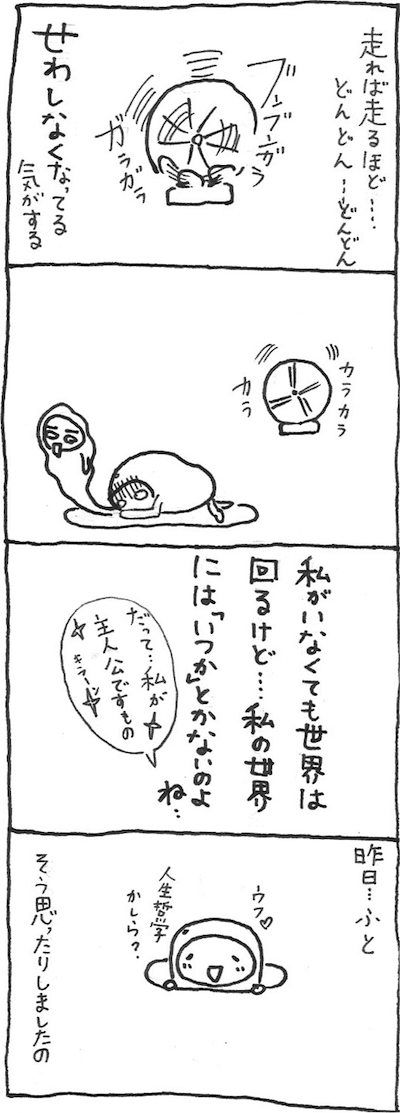 走れば走るほど…‥
どんどん…どんどん
ブンブンガラ
ガラガラ
せわしなくなってる
気がする
カラカラ
カラ
私がいなくても世界は
回るけど…私の世界
には「いつか」とかないのよ
ね…
だって…私が
主人公ですもの
キラーン
昨日…ふと
ウフ♡
人生哲学
かしら?
そう思ったりしましたの